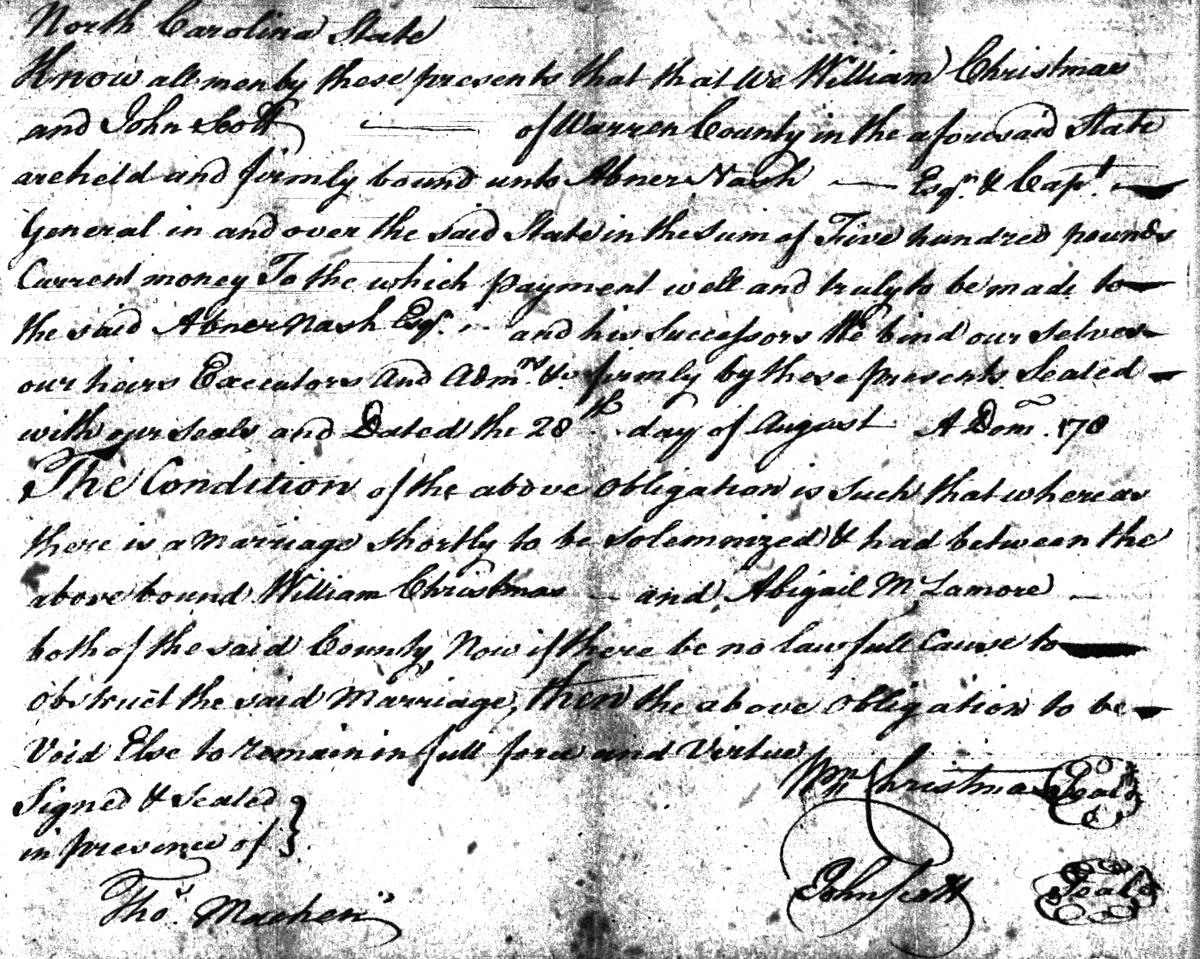 North Carolina State
Know all men by these presents that that We William Christmas
and John Scott of Warren County in the aforesaid State
are held and firmly bound unto Abner Nash Esqr. & Capt.
General in and over the said State in the Sum of Five hundred pounds
Current money To the which payment well and truly to be made to
the said Abner Nash Esqr. and his Successors We bind our selves
our heirs Executors And Admrs. &c firmly by these presents Sealed
with our seals and Dated the 28th day of August A Dom. 178
The Condition of the above Obligation is Such that whereas
there is a Marriage Shortly to be Solemnized & had between the
above bound William Christmas and Abigail McLamore
both of the said County, Now if there be no lawfull Cause to
Obstruct the said Marriage, then the above Obligation to be
Void Else to remain in full force and Virtue
Signed & Sealed
in presence of
Wm Christmas Seal
Thos. Machen
John Scott Seal